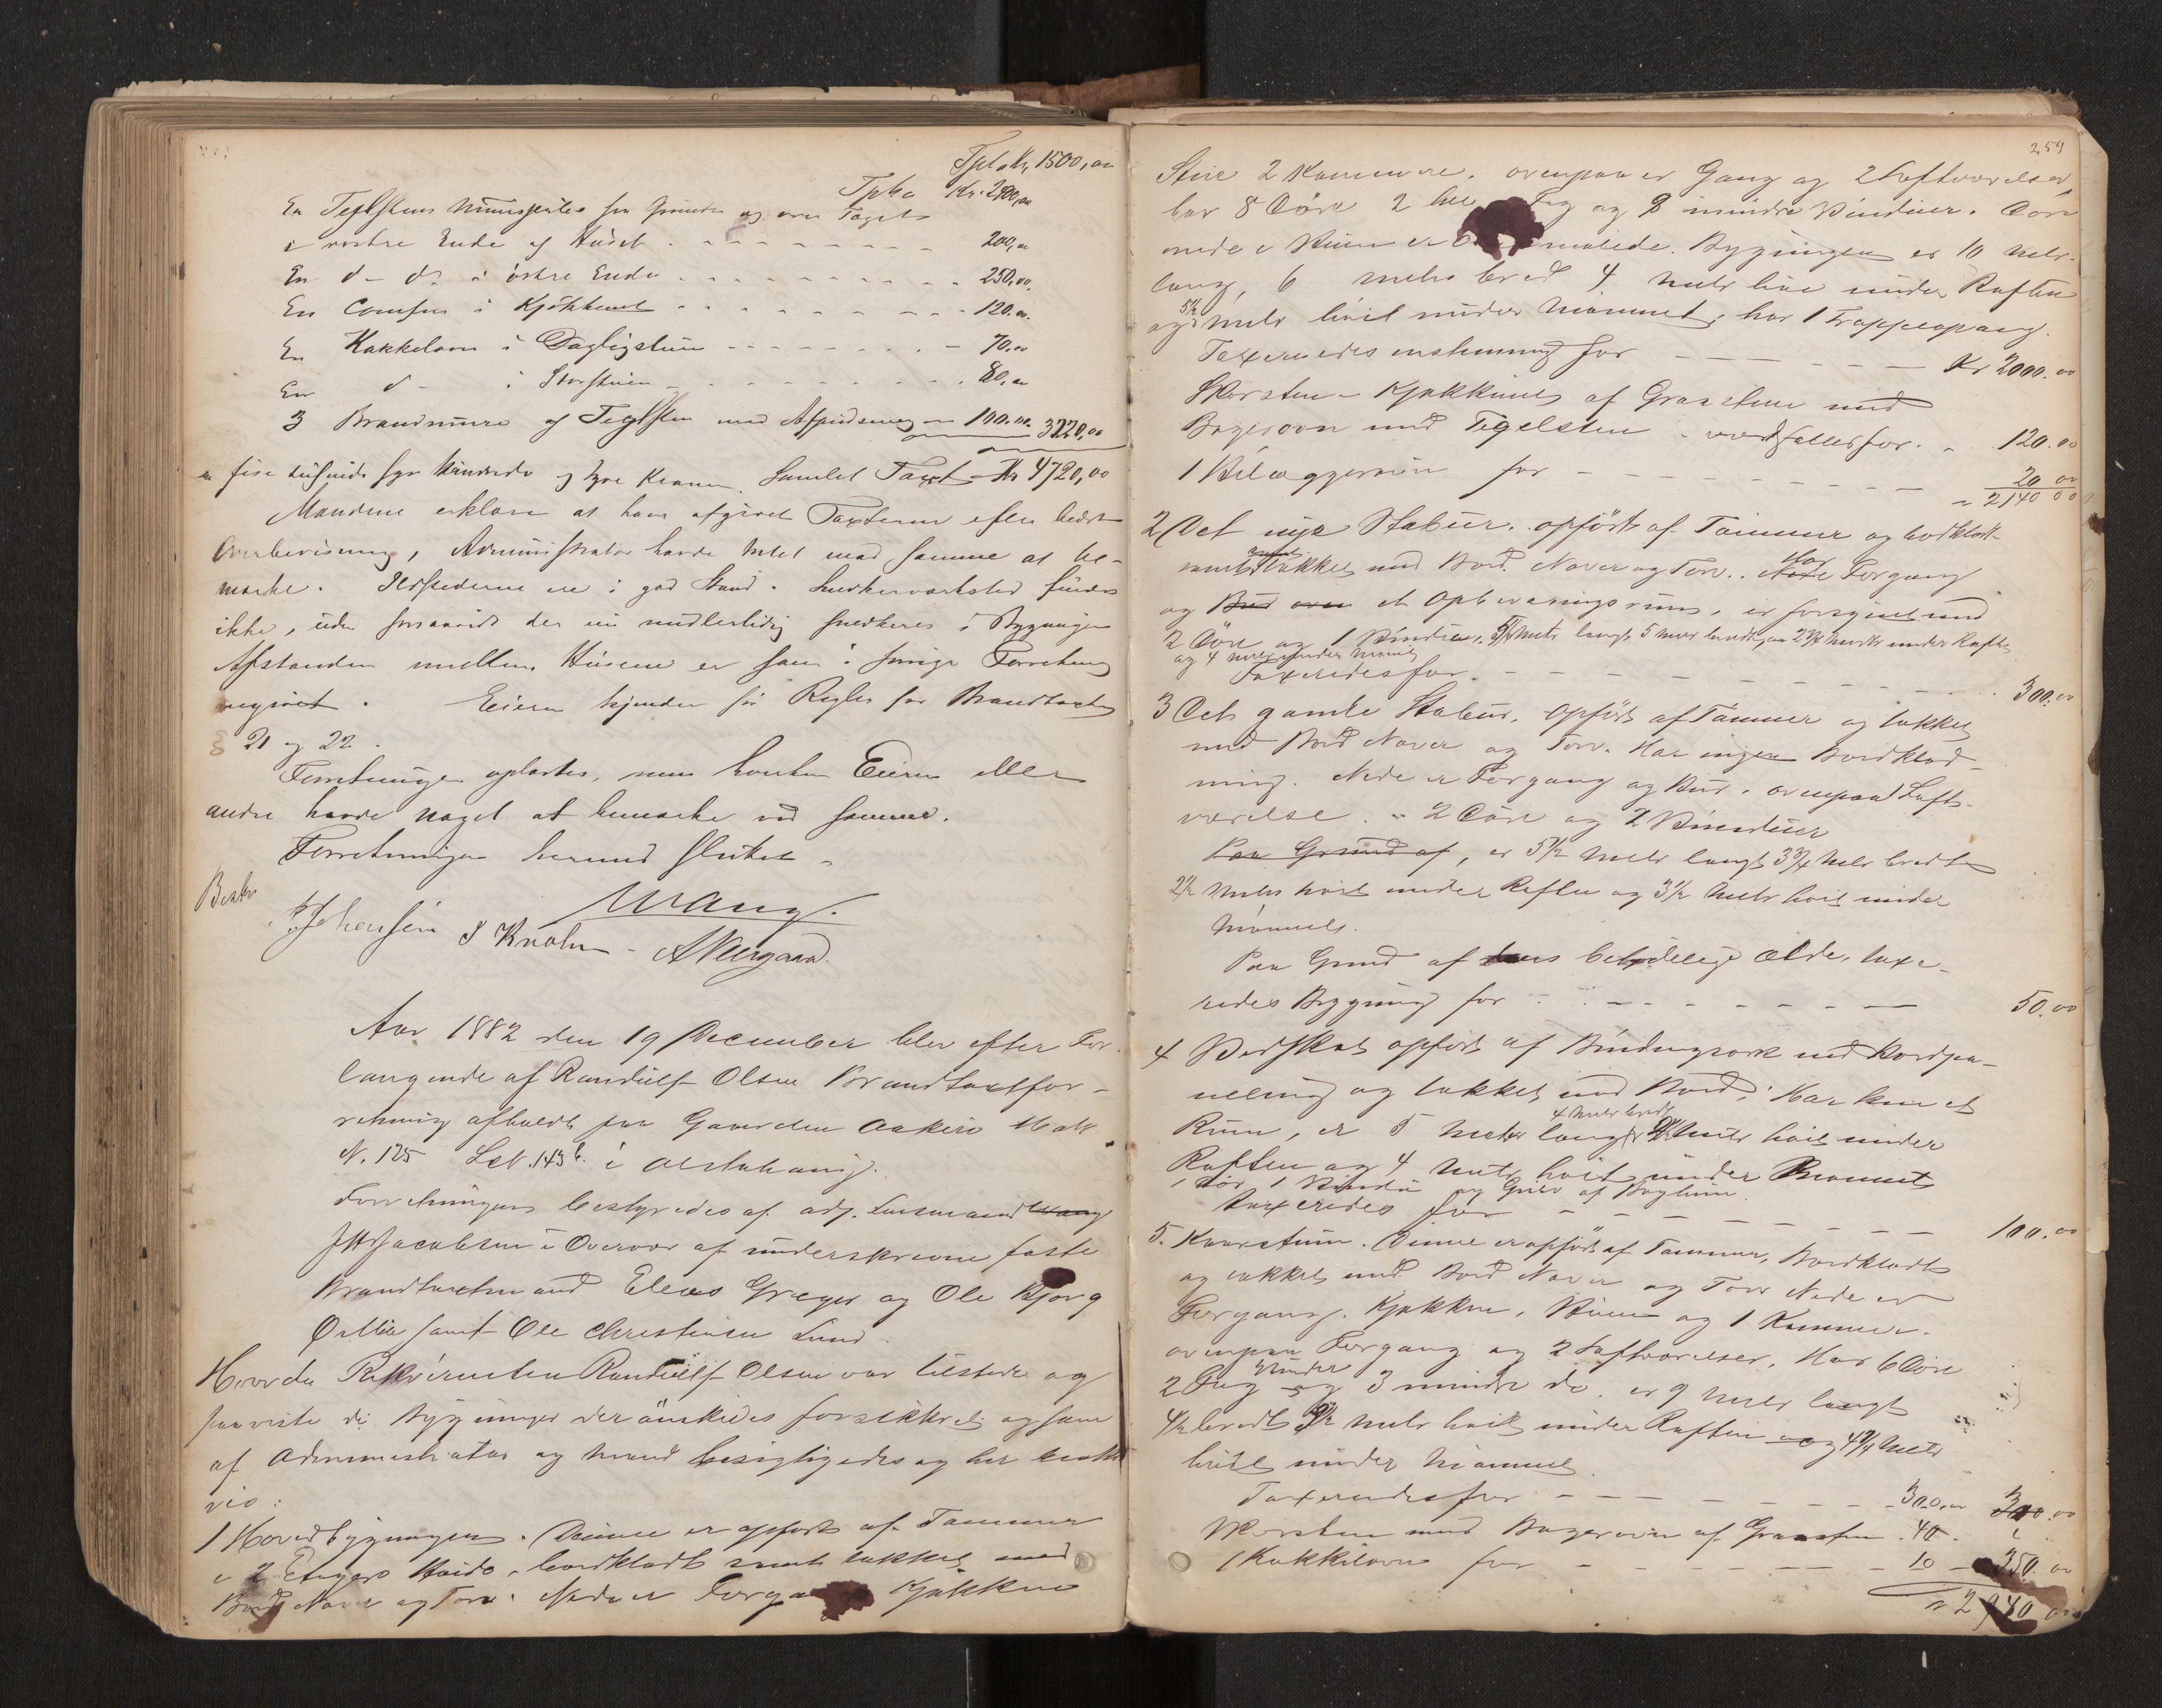 Tpt. Kr. 1500,00
Tpto Kr. 2400,00
En Teglstens Muurspibe fra Grunden og over Taget
i vestre Ende af Huset 200,00
En d- do i østre Ende 250,00
En Comfur i Kjøkkenet 120,00
En Kakkelovn i Dagligstuen 70,00
En d- i Storstuen 80,00
3 Brandmure af Teglsten med Afpudsning 100.00 3220,00
fire tusinde syv hundrede og tyve Kroner. Samlet Taxt Kr 4720,00
Mændene erklære at have afgivet Taxterne efter bedste
Overbevisning, Administrator havde Intet mod samme at be-
mærke. Ildstederne ere i god Stand. Snedkerværksted findes
ikke, uden forsaavidt der nu midlertidig snedkeres i Bygningen
Afstanden mellem Husene er som i forrige Forretning
angivet. Eieren kjender sin Regler for Brandtaxter
§ 21 og 22.
Forretningen oplæstes, men hverken Eieren eller
andre havde noget at bemærke ved samme.
Forretningen hermed sluttet
Beskr
Wang.
J. Johansen S Knoph A Neergaard.
Aar 1882 den 19 December blev efter For-
langende af Randulf Olsen Brandtaxtfor-
retning afholdt paa Gaarden Aakirø Matr
N. 125 Lbn. 143b. i Alstahaug.
Forretningen bestyredes af adj. Lensmand Wang
J H Jacobsen i Overvær af underskrevne faste
Brandtaxtmænd Eleas Greger og Ole Bjørg
samt Ole Christensen Lund.
Hvorda Rekvirenten Randulf Olsen var tilstede og
paaviste de Bygninger der ønskedes forsikkret og som
af Administrator og Mænd besigtigedes og her beskri
ves:
1 Hovedbygningen. Denne er opført af Tømmer
i 2 Etagers Høide, bordklædt samt tækket med
Bord Næver og Torv. Nede er Forgang Kjøkken
259
Stue 2 Kammere. ovenpaa er Gang og 2 Loftværelser,
har 8 Døre 2 hele Fag og 8 mindre Vinduer. Døre
nede i Stuen er malede. Bygningen er 10 meter
lang, 6 meter bred 4 meter høi under Raften
og 5½ meter høit under Mønnet, har 1 Trappeopgang.
Taxeredes enstemmig for Kr 2000.00
Skorsten i Kjøkkenet af Graasten med
Bagerovn med Teglsten værdsattes for. 120.00
1 Bilæggerovn for 20 00
2140 00
2 Det nye Stabur. opført af Tømmer og bordklædt
samt tækket med Bord. Næver og Torv. Har Nede Forgang
og Bud over et Opbevaringsrum, er forsynet med
2 Døre og 1 Vindue. 5½ meter langt 5 meter bredt, 2¾ meter under Raften
og 4 meter under Mønnet
Taxeredes for. 300.00
3 Det gamle Stabur. Opført af Tømmer og tækket
med Bord Næver og Torv. Har ingen Bordklæd-
ning. Nede er Forgang og Bud. ovenpaa Loft-
værelse. 2 Døre og 2 Vinduer
Paa Grund af, er 5½ meter langt 3¾ meter bredt
2½ meter høit under Raften og 3½ meter høit under
Mønnet.
Paa Grund af dens betydelige Ælde, taxe-
redes Bygning for 50.00
4 Vedskot opført af Bindingsverk med Bordpa-
neling og tækket med Bord. Har kun et
Rum, er 5 meter langt 4 meter bredt 2½ meter høit under
Raften og 4 meter høit under Mønnet
1 Dør 1 Vindu og Gulv af
taxeredes for 100.00
5. Kaarstuen. Denne er opført af Tømmer, Bordklædt
og tækket med Bord Næver og Torv Nede er
Forgang. Kjøkken, Stuen og 1 Kammer.
ovenpaa Forgang og 2 Loftværelser. Har 6 Døre
2 Fag Vinder og 3 mindre do. er 9 meter langt
4½ bredt 3½ meter høit under Raften og 4¾ meter
høit under Mønnet.
Taxeredes for 300.00 300.00
Skorsten med Bagerovn af Graasten 40.
1 Kakkelovn for 10 350.00
2940 00